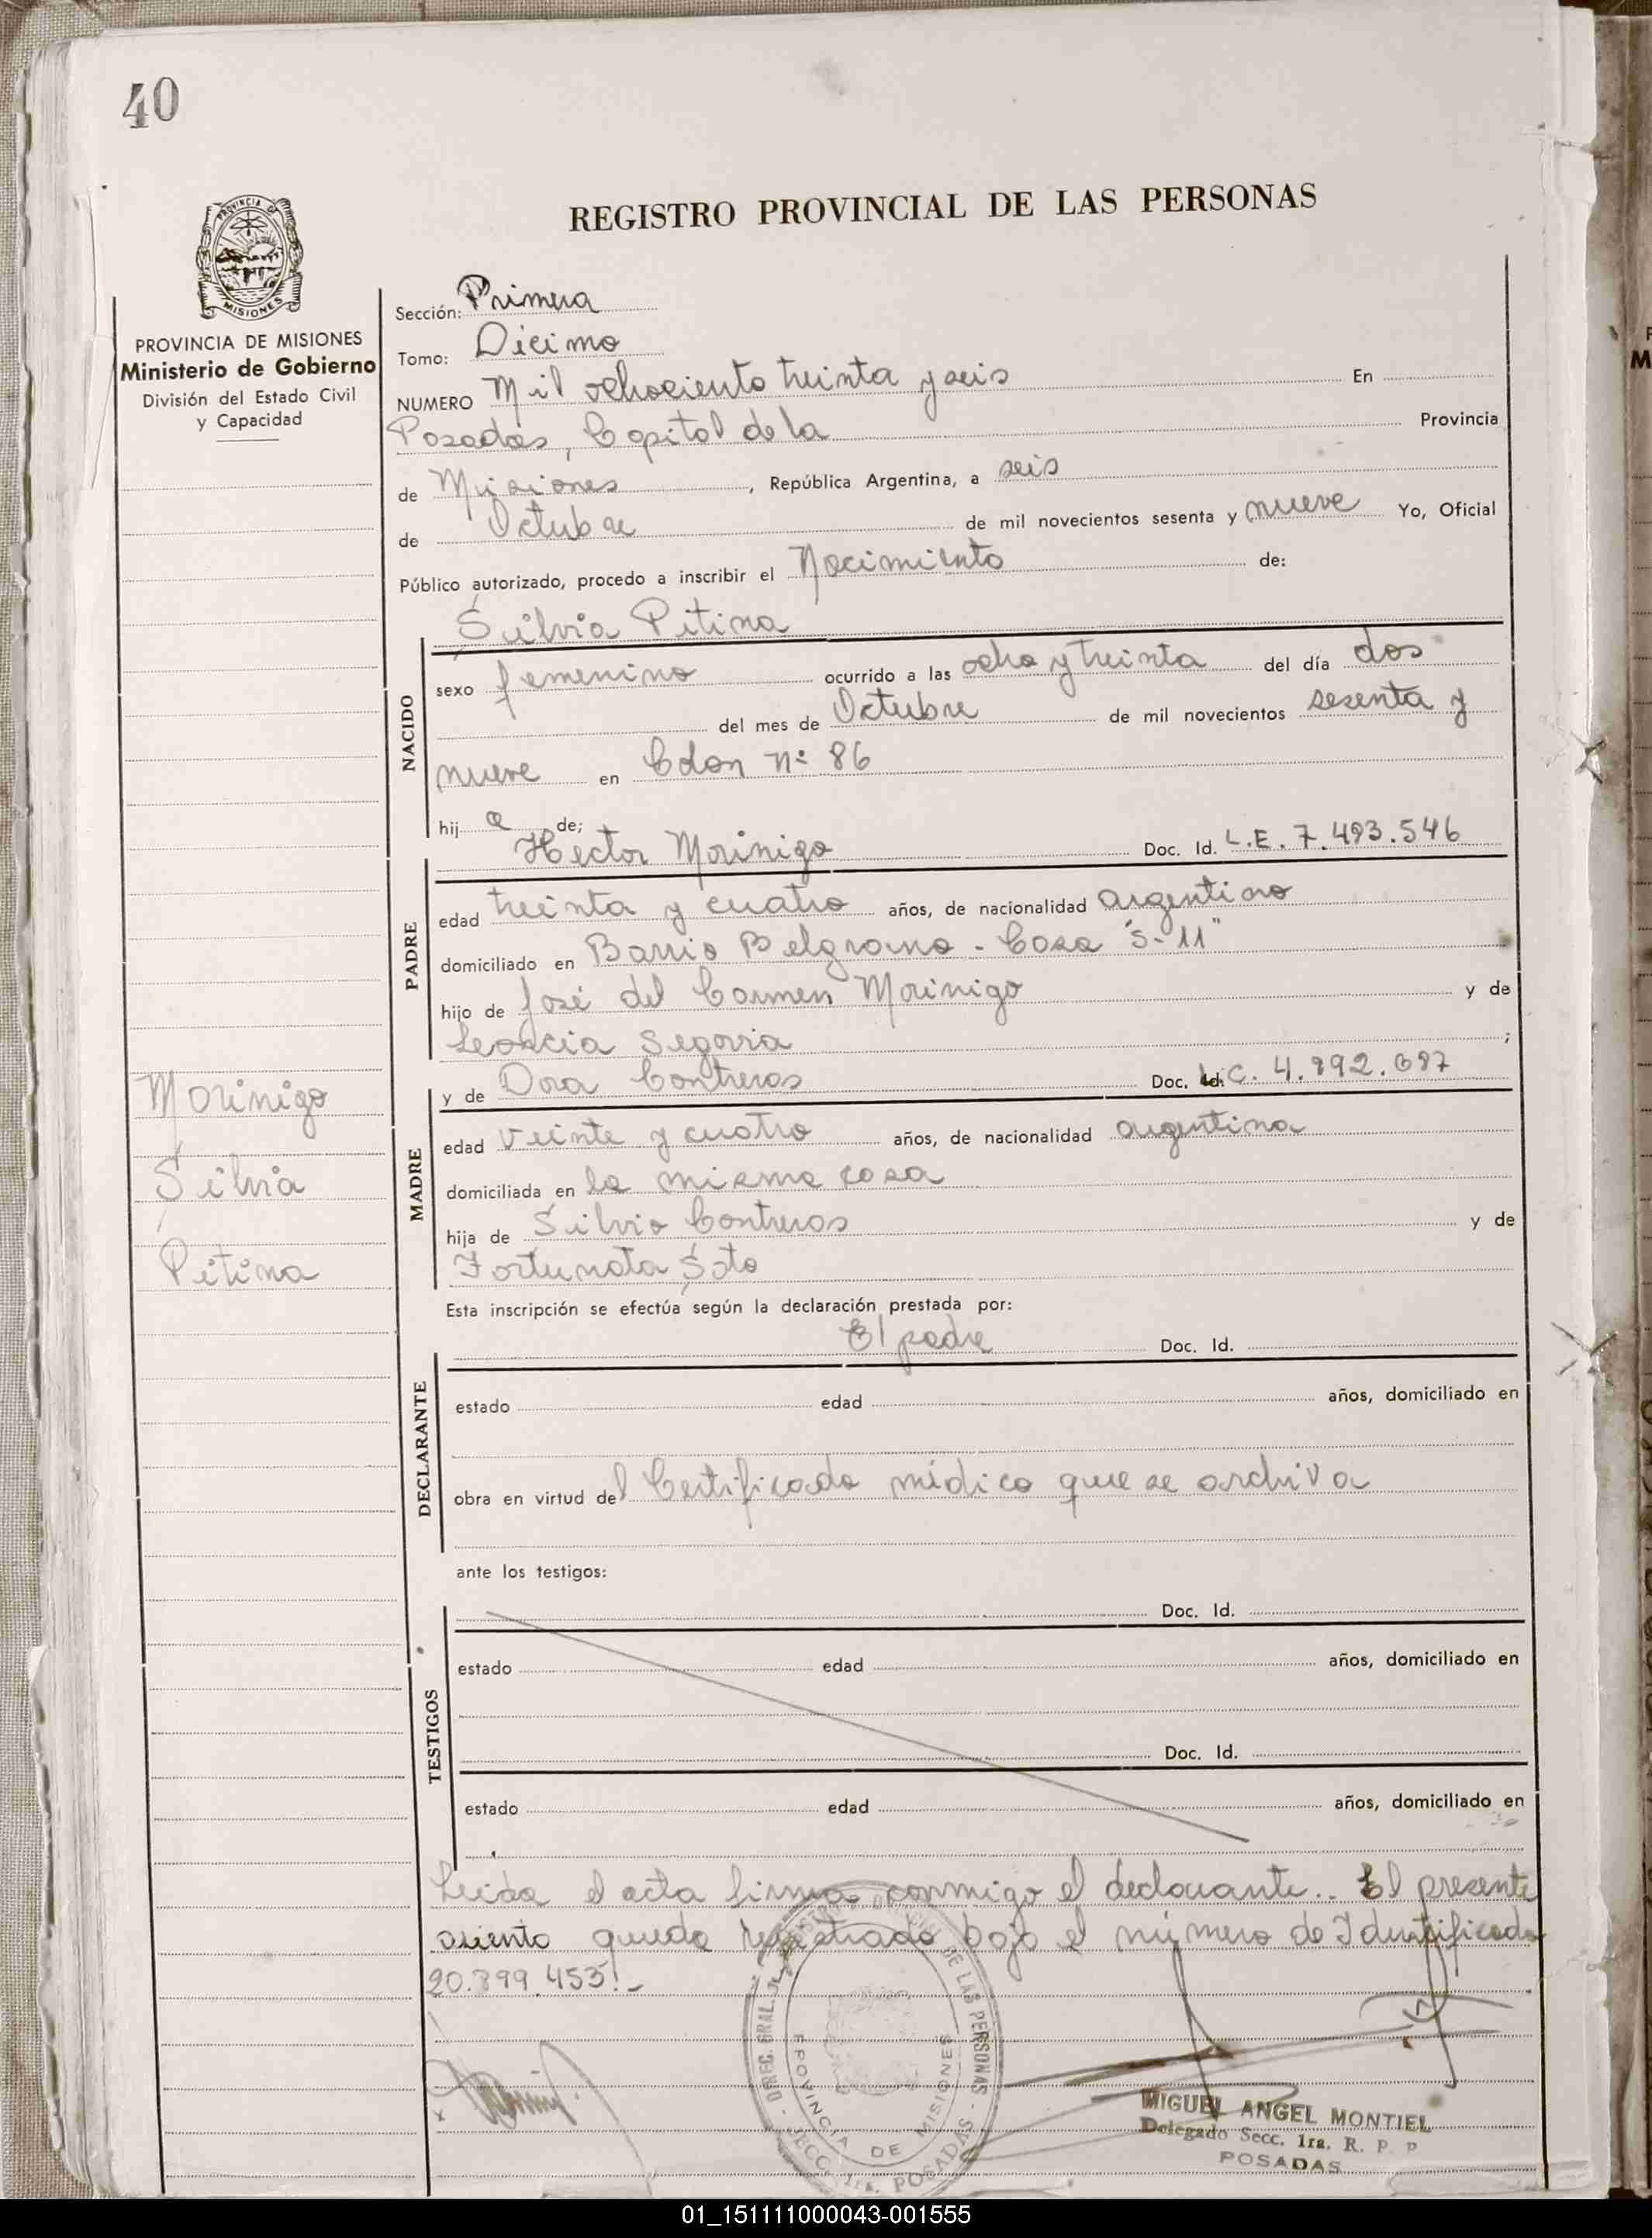 40
REGISTRO PROVINCIAL DE LAS PERSONAS
PROVINCIA DE MISIONES
Ministerio de Gobierno
División del Estado Civil
y Capacidad
Sección: Primera
Tomo: Dicimo
NUMERO Mil ochociento treinta y seis En
Posadas, Capital de la Provincia
de Misiones, República Argentina, a seis
de Octubre de mil novecientos sesenta y nueve Yo, Oficial
Público autorizado, procedo a inscribir el Nacimiento de:
Silvia Pitina
NACIDO
sexo femenino ocurrido a las ocho y treinta del día dos
del mes de Octubre de mil novecientos sesenta y
nueve en Colon Nº 86
hij a de;
Hector Morinigo Doc. Id. L.E. 7.493.546
PADRE
edad treinta y cuatro años, de nacionalidad argentino
domiciliado en Barrio Belgrano - Casa "S-11"
hijo de José del Carmen Morinigo y de
Leoncia Segovia ;
y de Dora Contreras Doc. L.C. 4.992.697
MADRE
edad veinte y cuatro años, de nacionalidad argentina
domiciliada en la misma casa
hija de Silvio Contreras y de
Fortunata Soto
Morinigo
Silvia
Pitina
Esta inscripción se efectúa según la declaración prestada por:
El padre Doc. Id.
DECLARANTE
estado edad años, domiciliado en
obra en virtud del Certificado médico que se archiva
ante los testigos:
Doc. Id.
TESTIGOS
estado edad años, domiciliado en
Doc. Id.
estado edad años, domiciliado en
Leida el acta firma conmigo el declarante.. El presente
asiento queda registrado bajo el número de Identificado
20.899.453!-
DIREC. GRAL. DE LAS PERSONAS - SECC. 1ra. POSADAS -
PROVINCIA DE MISIONES
MIGUEL ANGEL MONTIEL
Delegado Secc. 1ra. R. P. P
POSADAS
01_151111000043-001555